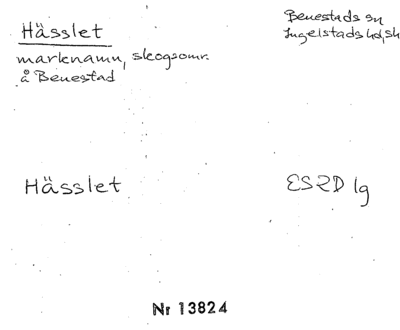 Hässlet
marknamn, skogsomr.
å Benestad
Benestads sn
Ingelstads hd, sk
Hässlet
ES2D lg
Nr 13824